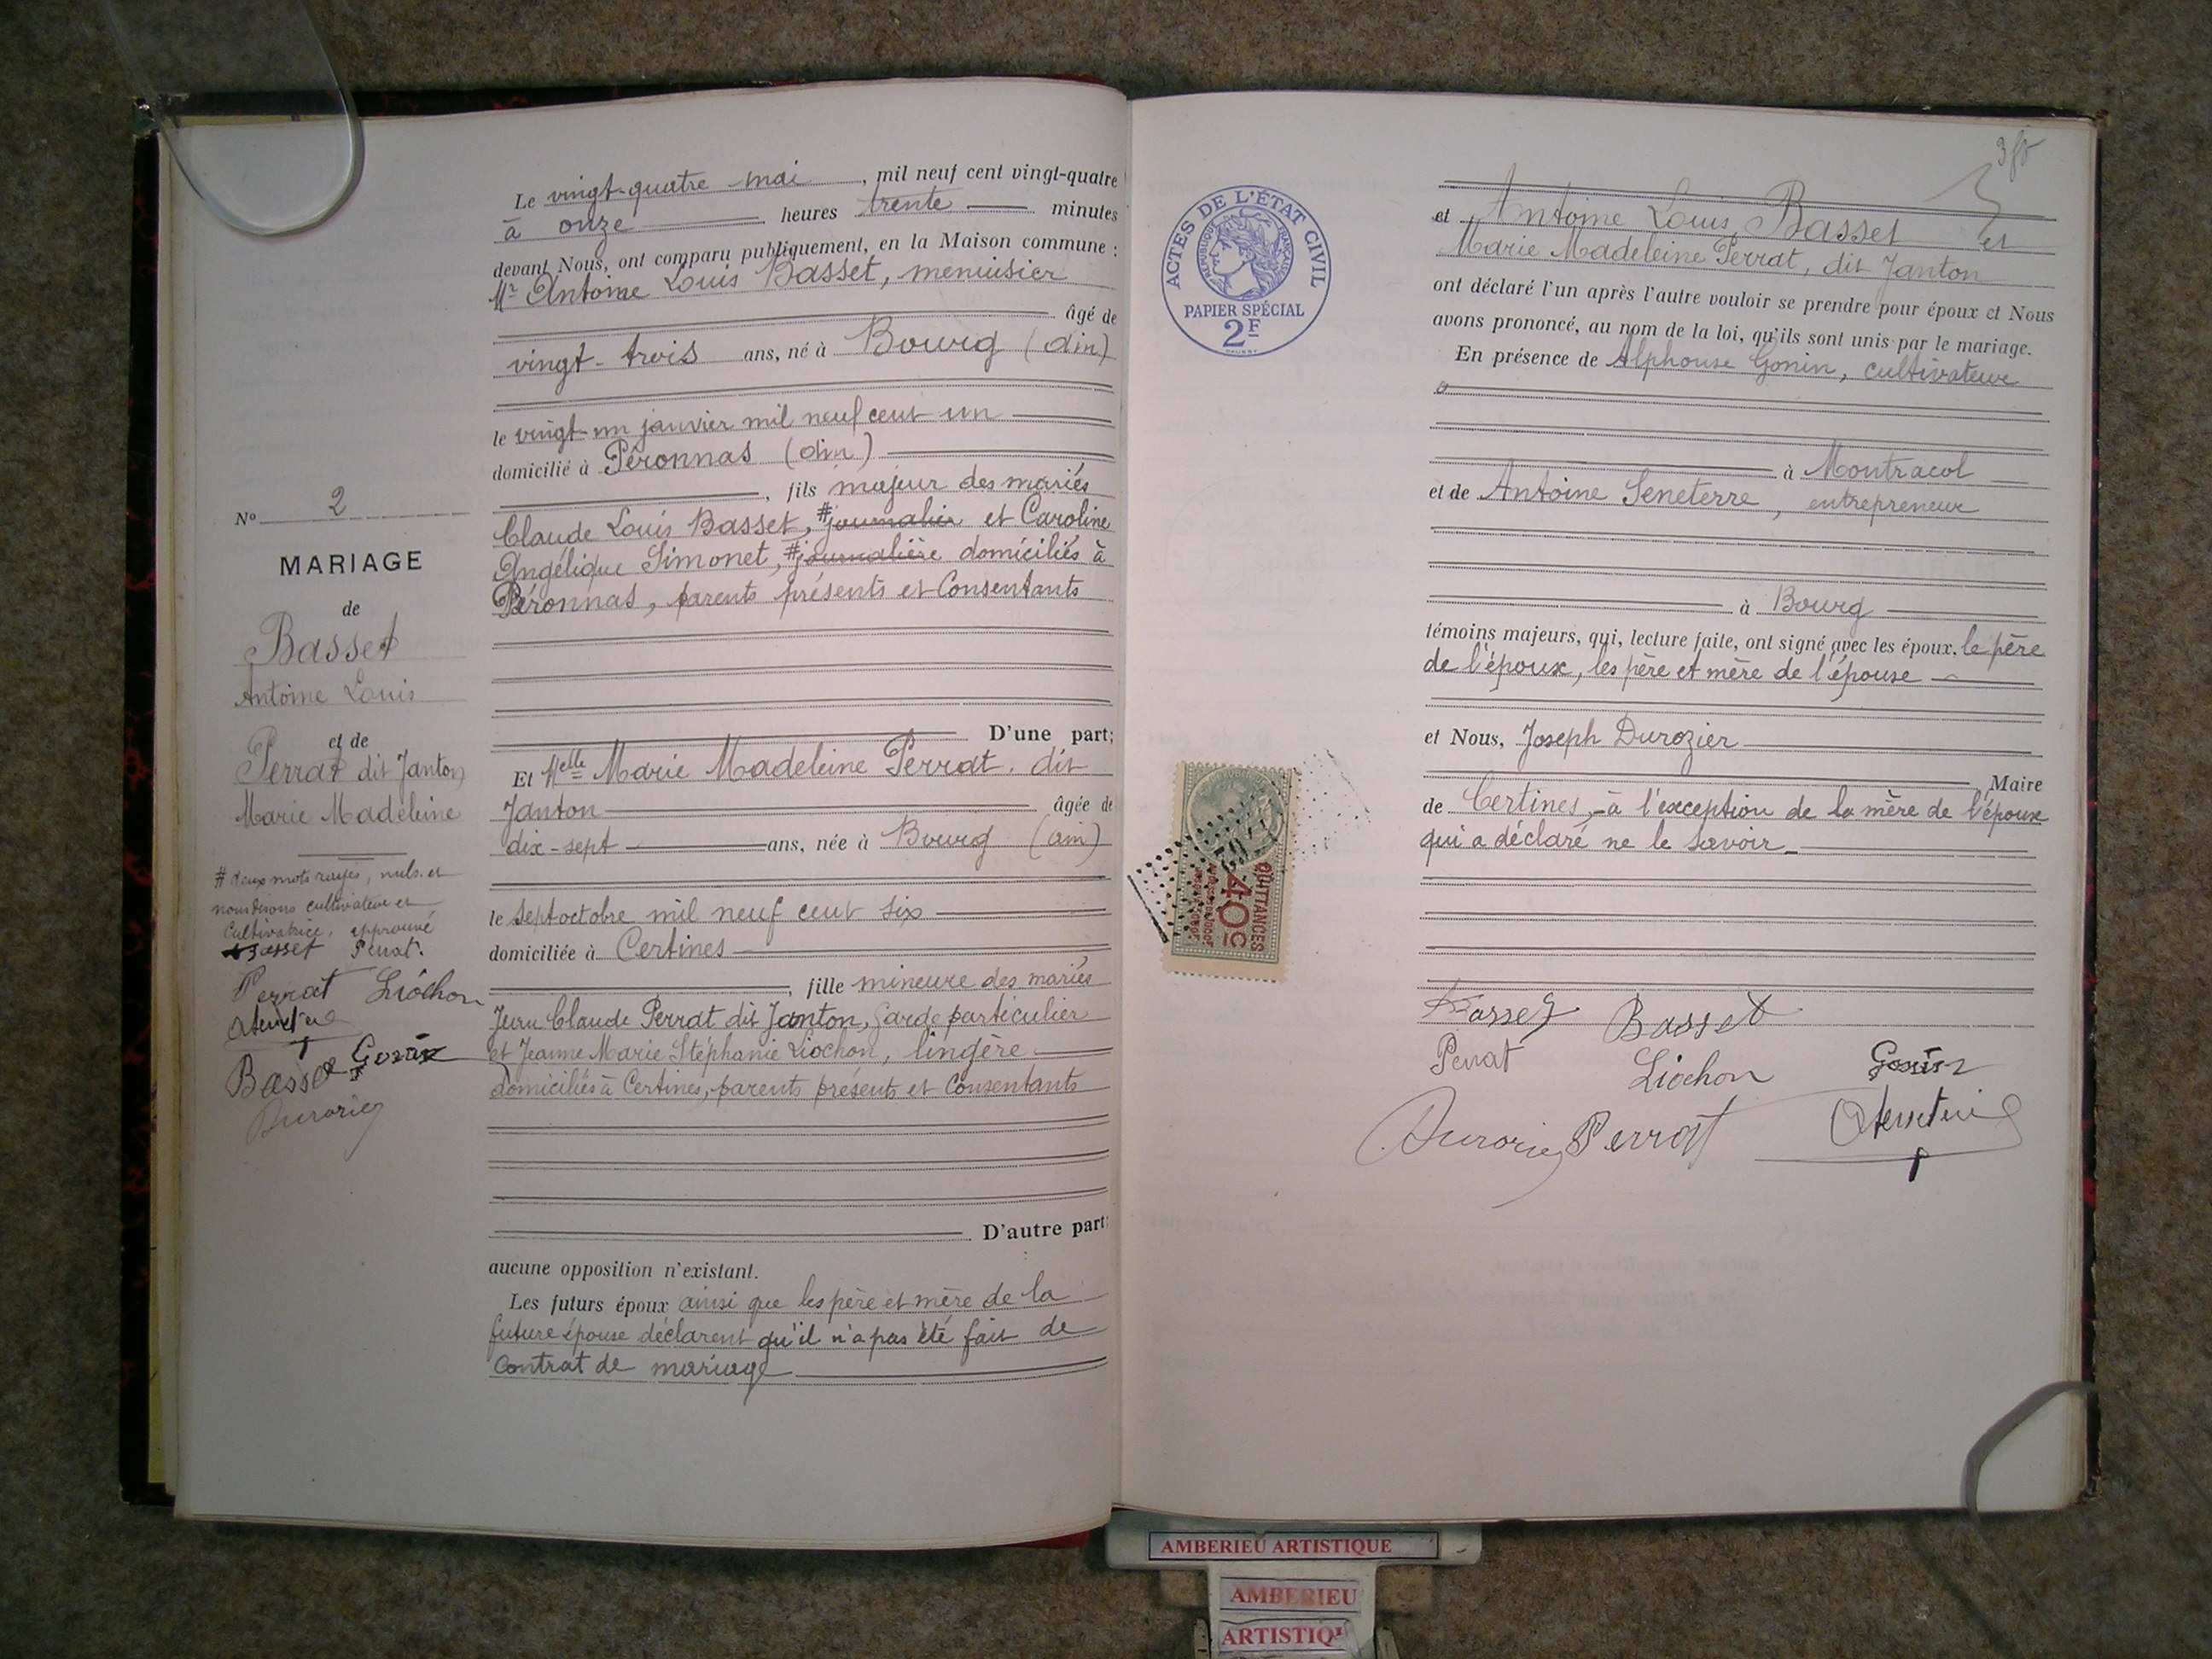 Le vingt-quatre mai, mil neuf cent vingt-quatre
à onze heures trente minutes
devant Nous, ont comparu publiquement, en la Maison commune :
Mr Antoine Louis Basset, menuisier
âgé de
vingt-trois ans, né à Bourg (Ain)
le vingt-un janvier mil neuf cent un
domicilié à Péronnas (Ain)
, fils majeur des mariés
Claude Louis Basset, # journalier et Caroline
Angélique Simonet, # journalière domiciliés à
Péronnas, parents présents et Consentants
D'une part;
Et Melle Marie Madeleine Perrat, dit
Janton âgée de
dix-sept ans, née à Bourg (ain)
le sept octobre mil neuf cent six
domiciliée à Certines
, fille mineure des mariés
Jean Claude Perrat dit Janton, garde particulier
et Jeanne Marie Stéphanie Liochon, lingère
domiciliés à Certines, parents présents et Consentants
D'autre part;
aucune opposition n'existant.
Les futurs époux ainsi que les père et mère de la
future épouse déclarent qu'il n'a pas été fait de
contrat de mariage
No 2
MARIAGE
de
Basset
Antoine Louis
et de
Perrat dit Janton
Marie Madeleine
# deux mots rayés, nuls. et
nous disons cultivateur et
Cultivatrice, approuvé
Basset Perrat.
Perrat Liochon
Basset Gonin
Durozier
ACTES DE L'ÉTAT CIVIL
RÉPUBLIQUE FRANÇAISE
PAPIER SPÉCIAL
2F
QUITTANCES
40c
et Antoine Louis Basset et
Marie Madeleine Perrat, dit Janton
ont déclaré l'un après l'autre vouloir se prendre pour époux et Nous
avons prononcé, au nom de la loi, qu'ils sont unis par le mariage.
En présence de Alphonse Gonin, cultivateur
à Montracol
et de Antoine Seneterre, entrepreneur
à Bourg
témoins majeurs, qui, lecture faite, ont signé avec les époux, le père
de l'époux, les père et mère de l'épouse
et Nous, Joseph Durozier
Maire
de Certines, à l'exception de la mère de l'époux
qui a déclaré ne le savoir
Basset Basset
Perrat Liochon Gonin
Durozier Perrat
AMBERIEU ARTISTIQUE
AMBERIEU
ARTISTIQ